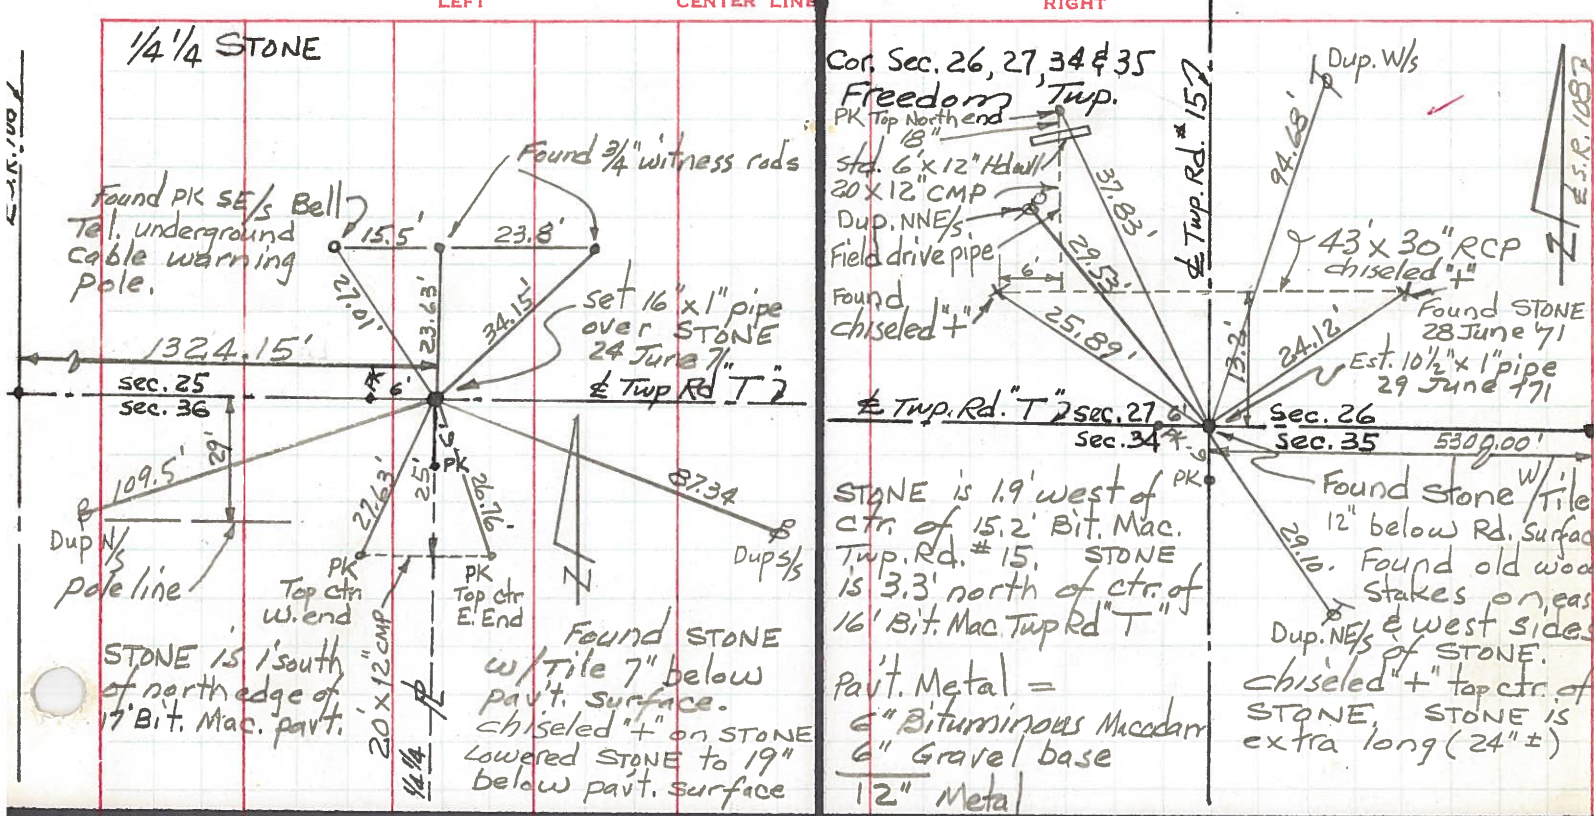 LEFT
CENTER LINE
RIGHT
1/4 1/4 STONE
Found 3/4" witness rods
Found PK SE/s Bell
Tel. underground
Cable warning
Pole.
15.5'
23.8'
27.01'
23.63'
34.15'
set 16" x 1" pipe
over STONE
24 June 71
1324.15'
sec. 25
sec. 36
PK
6'
℄ Twp Rd "T"
109.5'
29'
27.63'
6'
PK
25'
26.76'
87.34
Dup N/s
Pole line
PK
Top ctr
W. end
PK
Top ctr
E. End
Dup S/s
N
20' x 12" CMP
1/4 1/4 ℄
STONE is 1' south
of north edge of
17' Bit. Mac. pav't.
Found STONE
w/ Tile 7" below
pav't. surface.
chiseled "+" on STONE
Lowered STONE to 19"
below pav't. surface
Cor. Sec. 26, 27, 34 & 35
Freedom Twp.
PK Top North end
18"
Std. 6' x 12" Hdwll
20 x 12" CMP
Dup. NNE/s
Field drive pipe
6'
Found
chiseled "+"
37.83'
29.53'
25.89'
℄ Twp. Rd. # 15
Dup. W/s
94.68'
℄ S.R. 108
N
43' x 30" RCP
chiseled "+"
Found STONE
28 June '71
13.2'
24.12'
Est. 10 1/2" x 1" pipe
29 June '71
℄ Twp. Rd. "T"
sec. 27
sec. 34
6'
PK
Sec. 26
Sec. 35
5300.00'
6
PK
STONE is 1.9' west of
ctr. of 15.2' Bit. Mac.
Twp. Rd. # 15. STONE
is 3.3' north of ctr. of
16' Bit. Mac Twp Rd "T"
Pav't. Metal =
6" Bituminous Macadam
6" Gravel base
12" Metal
29.10.
Dup. NE/s
Found Stone w/ Tile
12" below Rd. Surfac
Found old woo
Stakes on eas
& west sides
of STONE.
chiseled "+" top ctr. of
STONE. STONE is
extra long (24" ±)